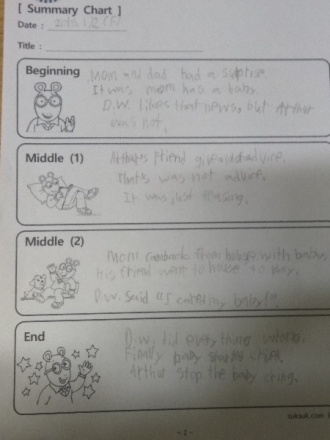 [ Summary Chart ]
Date :
Title :
Beginning
Mom and dad had a suprise.
It was mom has a baby.
D.W. likes that news, but Arther
was not.
Middle (1)
Arther's friend give advice.
That's was not advice.
It was just teasing.
Middle (2)
Mom comback from with baby.
his friend went to house
D.W. said "I my baby!".
End
D.W. did everything
Finally baby
Arthur stop the baby cring.
- 2 -